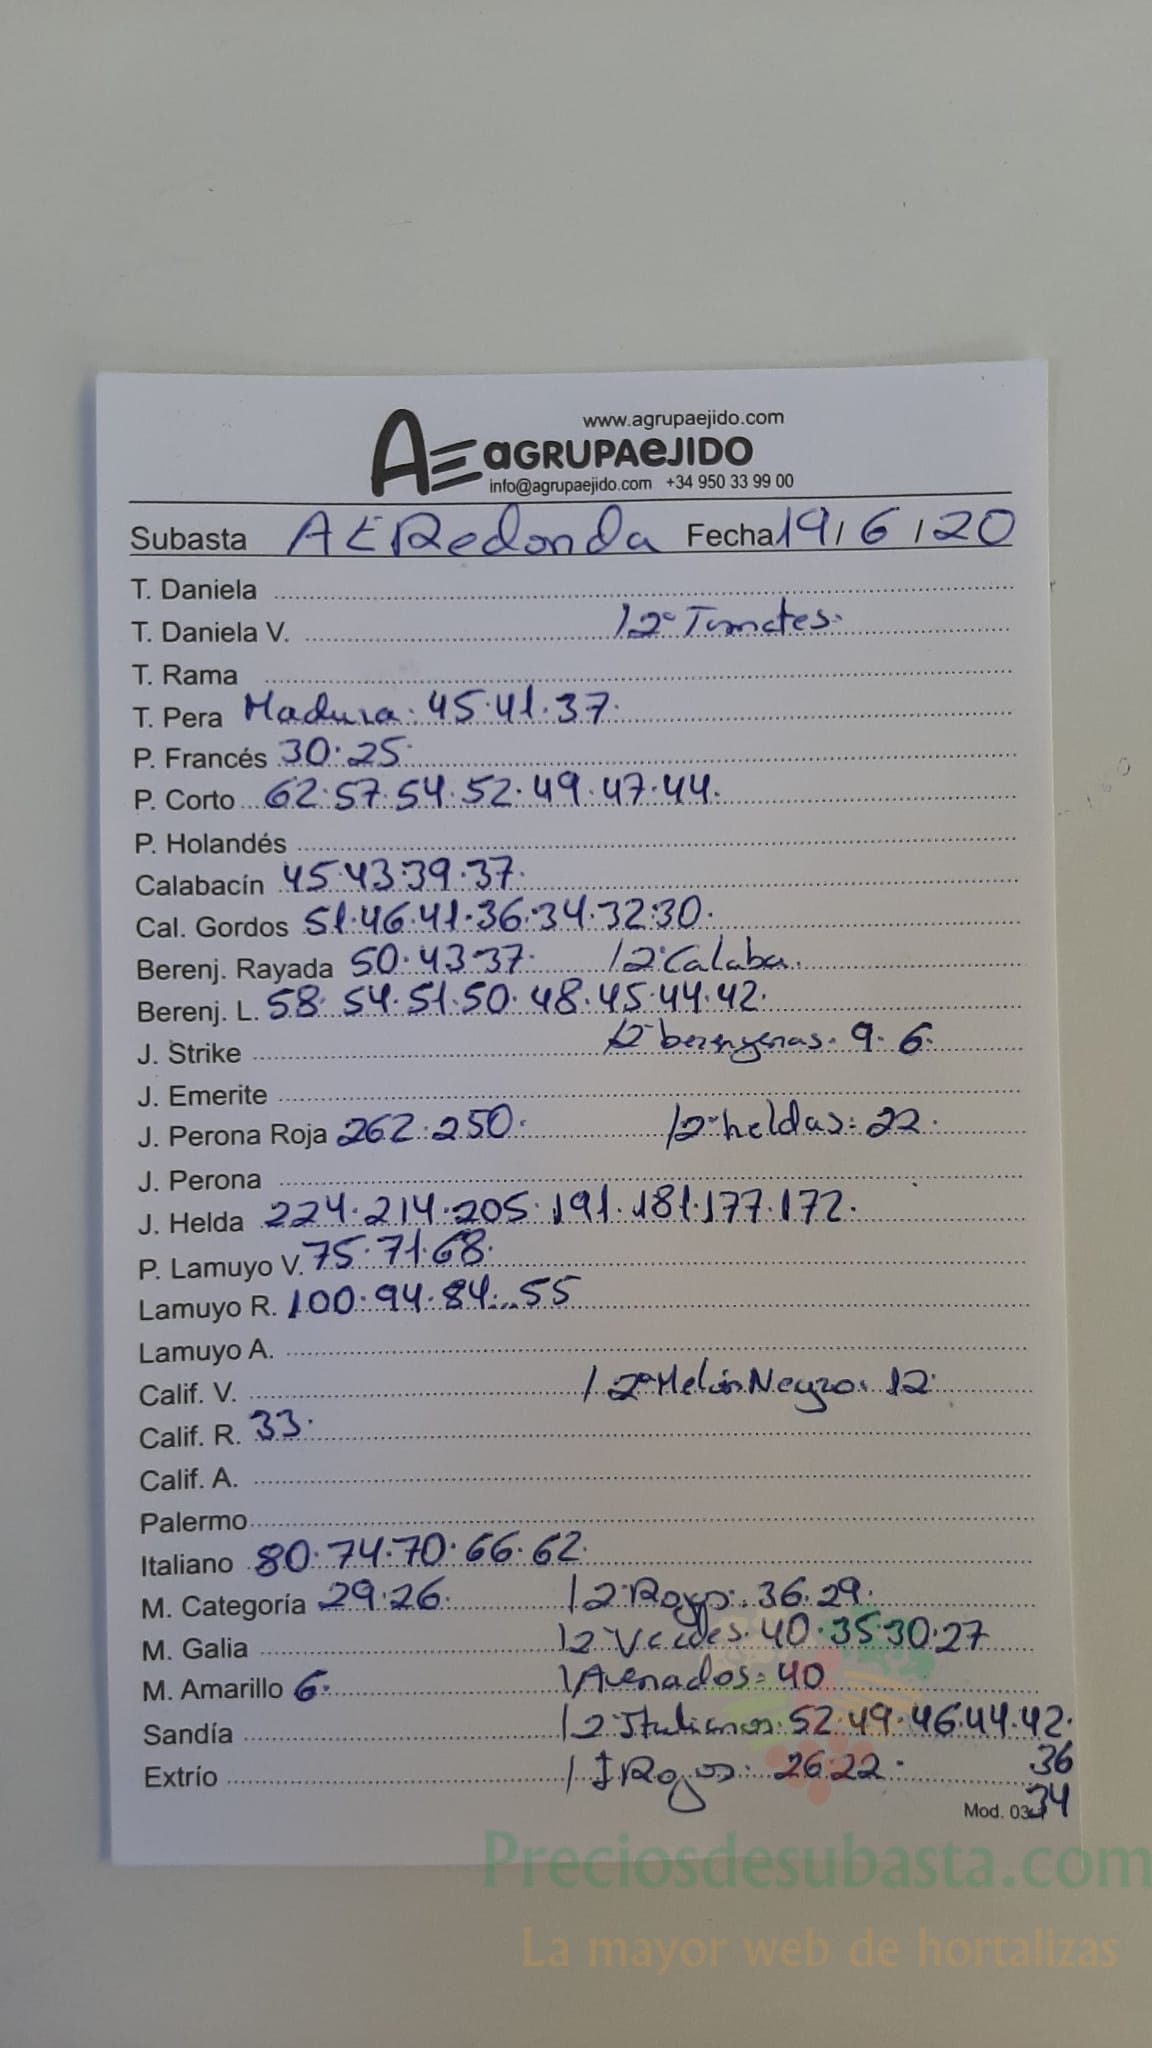 www.agrupaejido.com
AE aGRUPAeJIDO
info@agrupaejido.com +34 950 33 99 00
Subasta AE Redonda Fecha 19/6/20
T. Daniela
T. Daniela V. /2ª Tomates.
T. Rama
T. Pera Madura. 45.41.37.
P. Francés 30.25.
P. Corto 62.57.54.52.49.47.44.
P. Holandés
Calabacín 45.43.39.37.
Cal. Gordos 51.46.41.36.34.32.30.
Berenj. Rayada 50.43.37. /2ª Calaba.
Berenj. L. 58.54.51.50.48.45.44.42.
J. Strike /2ª berengenas. 9.6.
J. Emerite
J. Perona Roja 262.250. /2ª heldas: 22.
J. Perona
J. Helda 224.214.205.191.181.177.172.
P. Lamuyo V. 75.71.68.
Lamuyo R. 100.94.84...55
Lamuyo A.
Calif. V. /2ª Melón Negro. 12.
Calif. R. 33.
Calif. A.
Palermo
Italiano 80.74.70.66.62.
M. Categoría 29.26. /2ª Rojos. 36.29.
M. Galia /2ª Verdes. 40.35.30.27
M. Amarillo 6. /Asenados = 40
Sandía /2ª Italianos. 52.49.46.44.42.
36
Extrío / I Rojos. 26.22.
34
Mod. 03
Preciosdesubasta.com
La mayor web de hortalizas